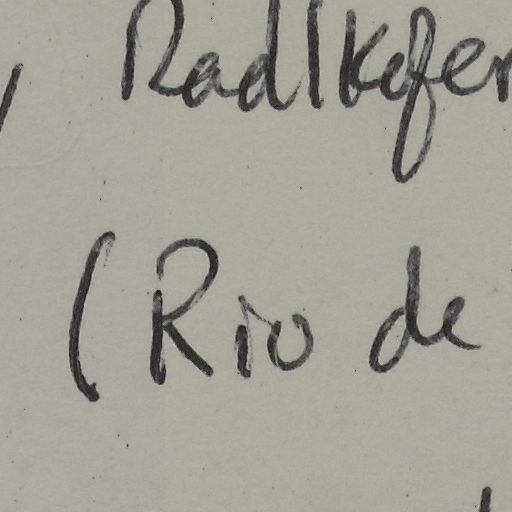 , Radlkofer
(Rio de